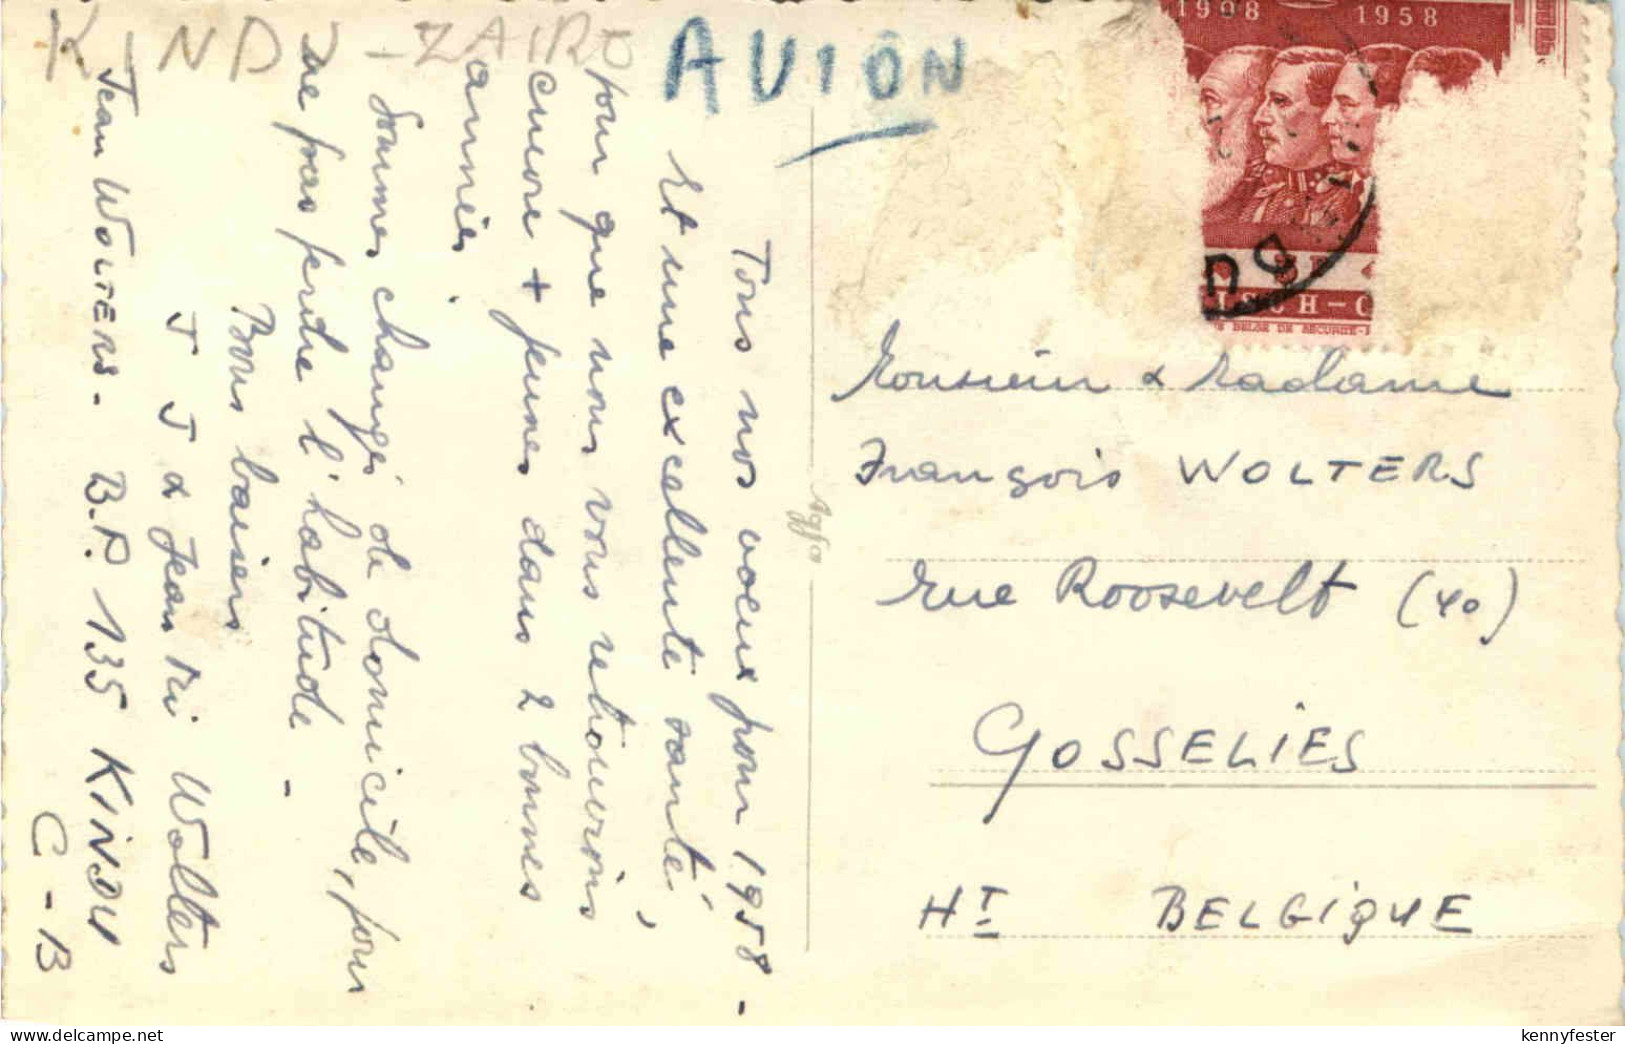 KIND - ZAIRE
AVION
1908 1958
Tous nos voeux pour 1958 -
Et une excellente santé,
pour que nous vous retouvrions
encore + jeunes dans 2 bonnes
années
! Sommes changés de domicile, pour
ne pas perdre l'habitude -
Bons baisers
J J & Jean Mi Wolters
Jean WOLTERS - B.P. 135 KINDU
C - B
Agfa
Monsieur & Madame
François WOLTERS
Rue Roosevelt (40)
GOSSELIES
HT BELGIQUE
DE BELGE DE SECURITE-
kennyfester